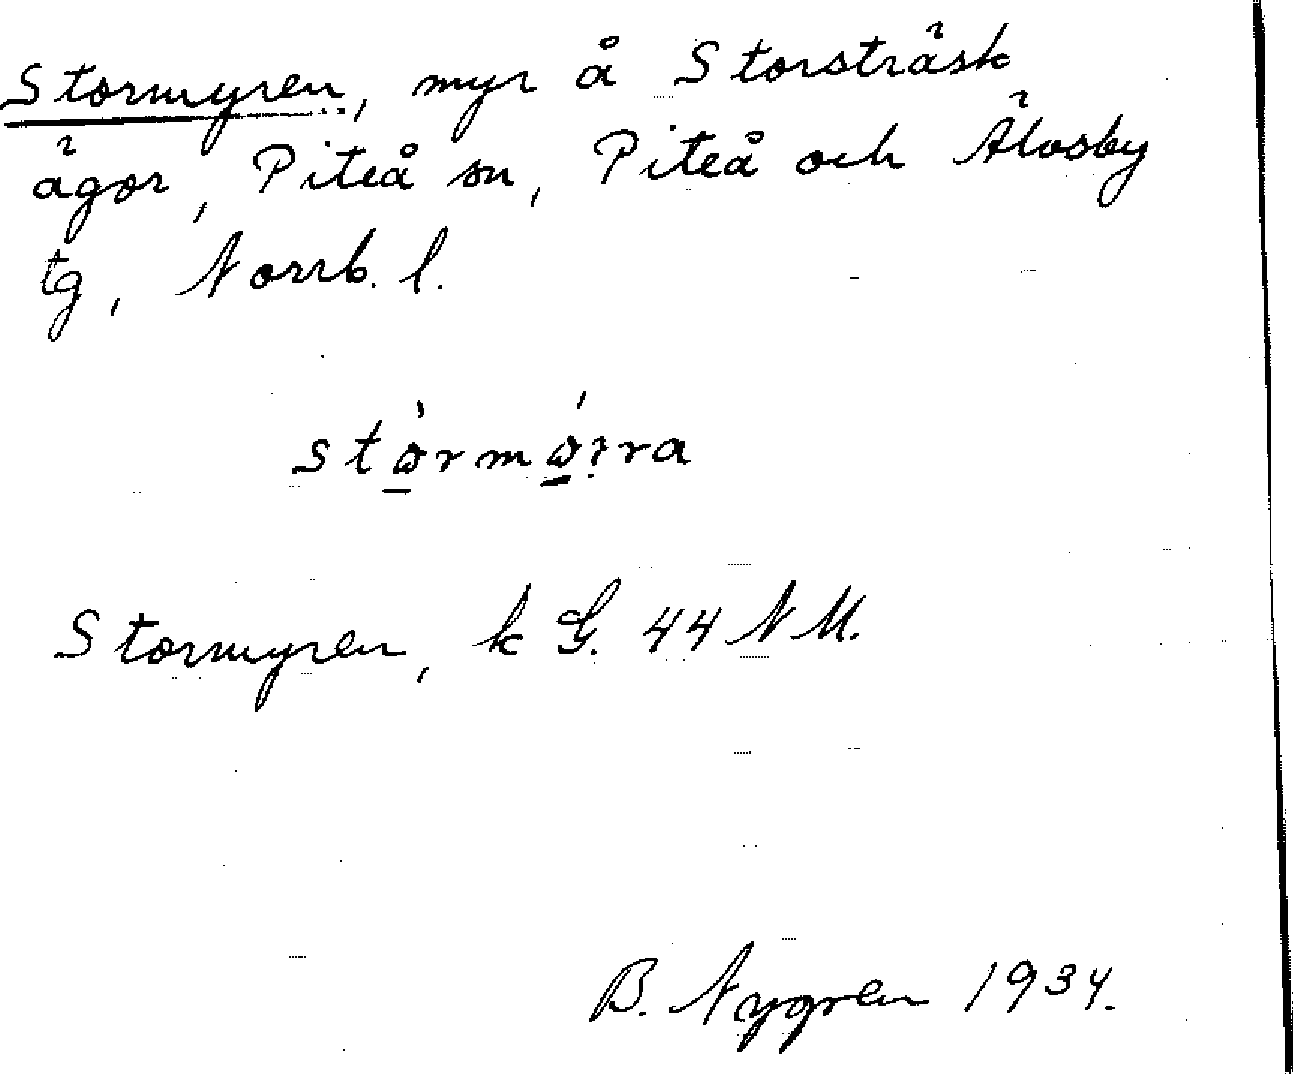 Stormyren, myr å Storsträsk
ägor, Piteå sn, Piteå och Älvsby
tg, Norrb. l.
Stormyren, k G. 44 N M.
B. Nygren 1934.